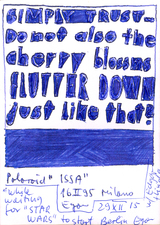 SIMPLY TRUST–
Do not also the
cherry blossoms
FLUTTER DOWN
just like that?
Polaroid "ISSA"
"while
waiting
for "STAR
WARS"
16 II 95 Milano
29 XII 15
to start Berlin